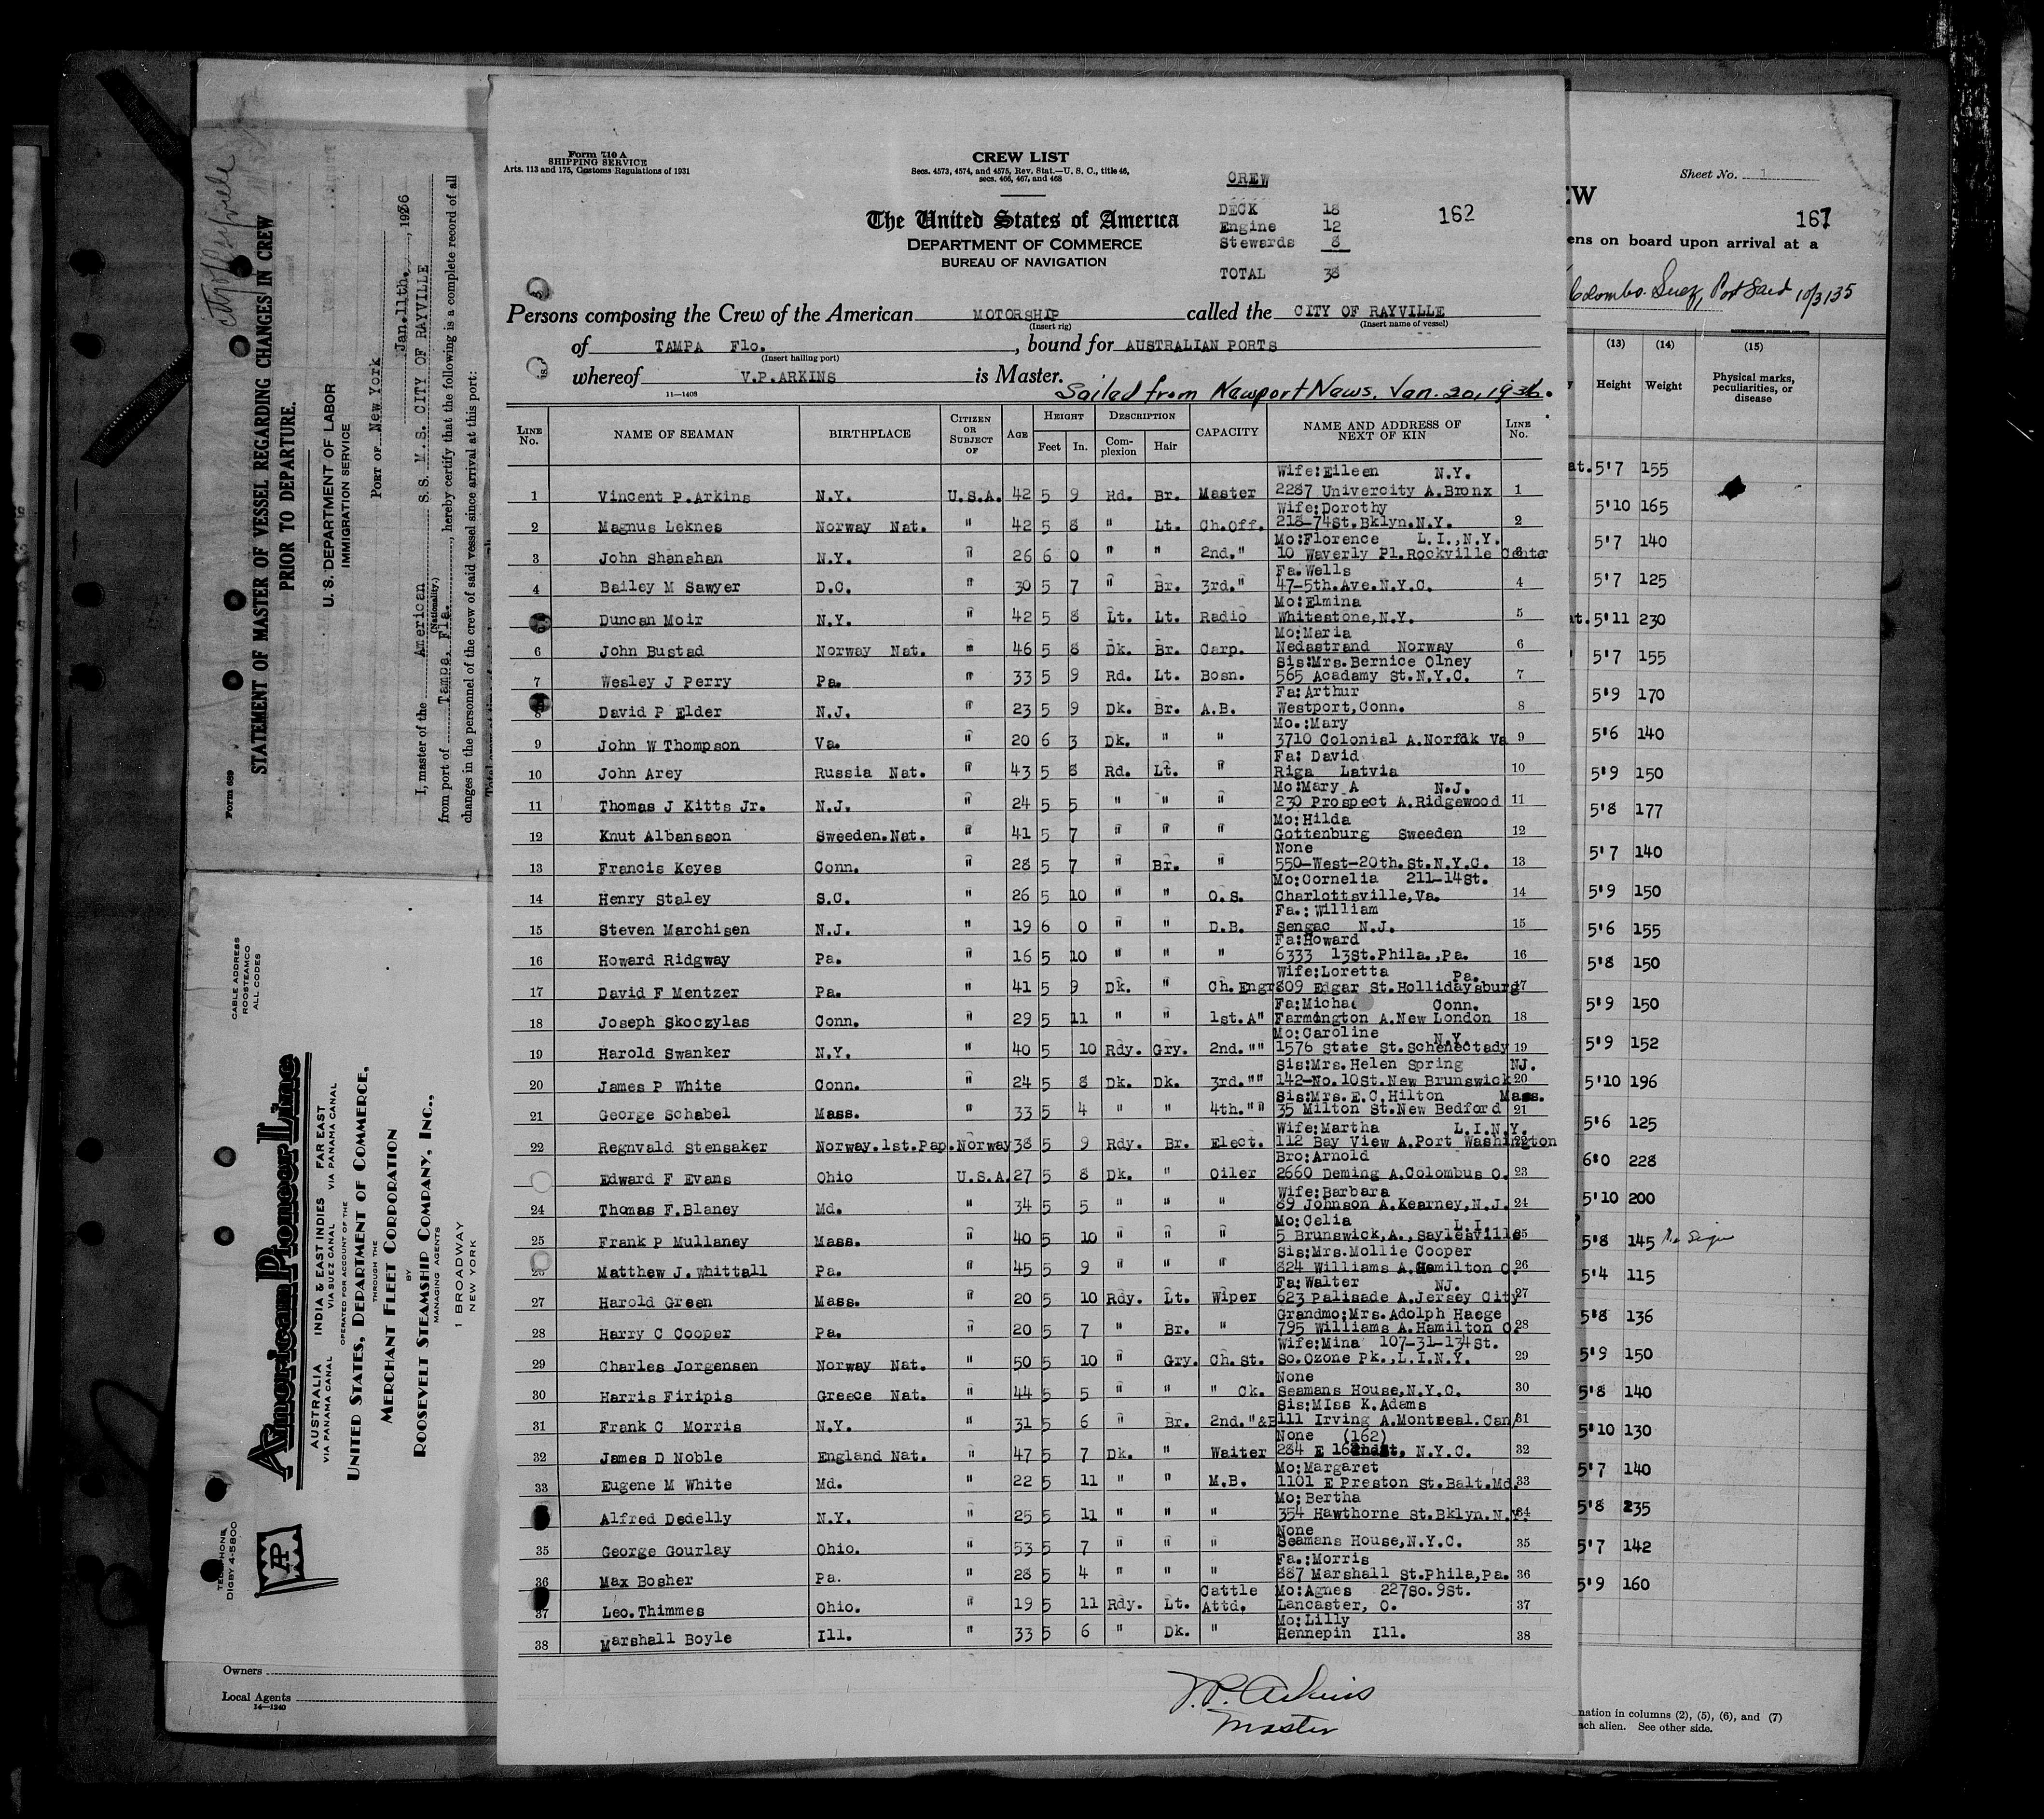 Form 710 A
SHIPPING SERVICE
Arts. 113 and 175, Customs Regulations of 1931
CREW LIST
Secs. 4573, 4574, and 4575, Rev. Stat.—U. S. C., title 46,
secs. 466, 467, and 468
The United States of America
DEPARTMENT OF COMMERCE
BUREAU OF NAVIGATION
CREW
DECK 18
Engine 12
Stewards 8
TOTAL 38
162
Persons composing the Crew of the American MOTORSHIP called the CITY OF RAYVILLE
(Insert rig) (Insert name of vessel)
of TAMPA Flo. , bound for AUSTRALIAN PORTS
(Insert hailing port)
whereof V.P.ARKINS is Master.
11—1408
Sailed from Newport News, Jan. 20, 1936.
LINE No. NAME OF SEAMAN BIRTHPLACE CITIZEN OR SUBJECT OF AGE HEIGHT Feet In. DESCRIPTION Complexion Hair CAPACITY NAME AND ADDRESS OF NEXT OF KIN LINE No.
Wife:Eileen N.Y.
1 Vincent P.Arkins N.Y. U.S.A. 42 5 9 Rd. Br. Master 2287 Univercity A.Bronx 1
Wife:Dorothy
2 Magnus Leknes Norway Nat. " 42 5 8 " Lt. Ch.Off. 218-74St.Bklyn.N.Y. 2
Mo:Florence L.I.,N.Y.
3 John Shanahan N.Y. " 26 6 0 " " 2nd." 10 Waverly Pl.Rockville Center
Fa.Wells
4 Bailey M Sawyer D.C. " 30 5 7 " Br. 3rd." 47-5th.Ave.N.Y.C. 4
Mo:Elmina
Duncan Moir N.Y. " 42 5 8 Lt. Lt. Radio Whitestone,N.Y. 5
Mo:Maria
6 John Bustad Norway Nat. " 46 5 8 Dk. Br. Carp. Nedastrand Norway 6
Sis:Mrs.Bernice Olney
7 Wesley J Perry Pa. " 33 5 9 Rd. Lt. Bosn. 565 Acadamy St.N.Y.C. 7
Fa:Arthur
8 David P Elder N.J. " 23 5 9 Dk. Br. A.B. Westport,Conn. 8
Mo.:Mary
9 John W Thompson Va. " 20 6 3 Dk. " " 3710 Colonial A.Norfolk Va 9
Fa: David
10 John Arey Russia Nat. " 43 5 8 Rd. Lt. " Riga Latvia 10
Mo:Mary A N.J.
11 Thomas J Kitts Jr. N.J. " 24 5 5 " " " 230 Prospect A.Ridgewood 11
Mo:Hilda
12 Knut Albansson Sweeden.Nat. " 41 5 7 " " " Gottenburg Sweeden 12
None
13 Francis Keyes Conn. " 28 5 7 " Br. " 550-West-20th.St.N.Y.C. 13
Mo:Cornelia 211-14St.
14 Henry Staley S.C. " 26 5 10 " " O.S. Charlottsville,Va. 14
Fa.:William
15 Steven Marchisen N.J. " 19 6 0 " " D.B. Sengac N.J. 15
Fa:Howard
16 Howard Ridgway Pa. " 16 5 10 " " " 6333 13St.Phila.,Pa. 16
Wife:Loretta Pa.
17 David F Mentzer Pa. " 41 5 9 Dk. " Ch.Engr. 809 Edgar St.Hollidaysburg 17
Conn.
18 Joseph Skoczylas Conn. " 29 5 11 " " 1st.A" Farmington A.New London 18
Mo:Caroline N.Y.
19 Harold Swanker N.Y. " 40 5 10 Rdy. Gry. 2nd."" 1576 State St.Schenectady 19
Sis:Mrs.Helen Spring NJ.
20 James P White Conn. " 24 5 8 Dk. Dk. 3rd."" 142-No.10St.New Brunswick 20
Sis:Mrs.E.C.Hilton Mass.
21 George Schabel Mass. " 33 5 4 " " 4th."" 35 Milton St.New Bedford 21
Wife:Martha L.I.N.Y.
22 Regnvald Stensaker Norway.1st.Pap. Norway 38 5 9 Rdy. Br. Elect. 112 Bay View A.Port Washington
Bro:Arnold
Edward F Evans Ohio U.S.A. 27 5 8 Dk. " Oiler 2660 Deming A.Colombus O. 23
Wife:Barbara
24 Thomas F.Blaney Md. " 34 5 5 " " " 89 Johnson A.Kearney,N.J. 24
Mo:Celia L.I.
25 Frank P Mullaney Mass. " 40 5 10 " " " 5 Brunswick,A.,Saylesville 25
Sis:Mrs.Mollie Cooper
Matthew J.Whittall Pa. " 45 5 9 " " " 824 Williams A.Hamilton O. 26
Fa:Walter NJ.
27 Harold Green Mass. " 20 5 10 Rdy. Lt. Wiper 623 Palisade A.Jersey City 27
Grandmo:Mrs.Adolph Haege
28 Harry C Cooper Pa. " 20 5 7 " Br. " 795 Williams A.Hamilton O. 28
Wife:Mina 107-31-134St.
29 Charles Jorgensen Norway Nat. " 50 5 10 " Gry. Ch.St. So.Ozone Pk.,L.I.N.Y. 29
None
30 Harris Firipis Greece Nat. " 44 5 5 " " " Ck. Seamans House,N.Y.C. 30
Sis:MIss K.Adams
31 Frank C Morris N.Y. " 31 5 6 " Br. 2nd."&B 111 Irving A.Montreal.Can/ 31
None (162)
32 James D Noble England Nat. " 47 5 7 Dk. " Waiter 284 E 162ndSt, N.Y.C. 32
Mo:Margaret
33 Eugene M White Md. " 22 5 11 " " M.B. 1101 E Preston St.Balt.Md. 33
Mo:Bertha
Alfred Dedelly N.Y. " 25 5 11 " " " 354 Hawthorne St.Bklyn.N.Y. 34
None
35 George Gourlay Ohio. " 53 5 7 " " " Seamans House,N.Y.C. 35
Fa.:Morris
36 Max Bosher Pa. " 28 5 4 " " " 887 Marshall St.Phila,Pa. 36
Cattle Mo:Agnes 227So.9St.
37 Leo.Thimmes Ohio. " 19 5 11 Rdy. Lt. Attd. Lancaster, O. 37
Mo:Lilly
38 Marshall Boyle Ill. " 33 5 6 " Dk. " Hennepin Ill. 38
V.P. Arkins
Master
Form 689
STATEMENT OF MASTER OF VESSEL REGARDING CHANGES IN CREW
PRIOR TO DEPARTURE.
U. S. DEPARTMENT OF LABOR
IMMIGRATION SERVICE
PORT OF New York
Jan.11th. , 1936
I, master of the American S. S. M.S. CITY OF RAYVILLE
(Nationality.)
from port of Tampa, Fla. , hereby certify that the following is a complete record of all
changes in the personnel of the crew of said vessel since arrival at this port:
CABLE ADDRESS
ROOSTEAMCO
ALL CODES
American Pioneer Line
AUSTRALIA INDIA & EAST INDIES FAR EAST
VIA PANAMA CANAL VIA SUEZ CANAL VIA PANAMA CANAL
OPERATED FOR ACCOUNT OF THE
UNITED STATES, DEPARTMENT OF COMMERCE,
THROUGH THE
MERCHANT FLEET CORPORATION
BY
ROOSEVELT STEAMSHIP COMPANY, INC.,
MANAGING AGENTS
1 BROADWAY
NEW YORK
TELEPHONE
DIGBY 4-5800
AP
Owners
Local Agents
14—1240
Sheet No. 1
EW
167
ens on board upon arrival at a
Colombo. Suez, Port Said 10/3/35
(13) (14) (15)
Height Weight Physical marks, peculiarities, or disease
5'7 155
5'10 165
5'7 140
5'7 125
5'11 230
5'7 155
5'9 170
5'6 140
5'9 150
5'8 177
5'7 140
5'9 150
5'6 155
5'8 150
5'9 150
5'9 152
5'10 196
5'6 125
6'0 228
5'10 200
5'8 145
5'4 115
5'8 136
5'9 150
5'8 140
5'10 130
5'7 140
5'8 235
5'7 142
5'9 160
mation in columns (2), (5), (6), and (7)
ach alien. See other side.